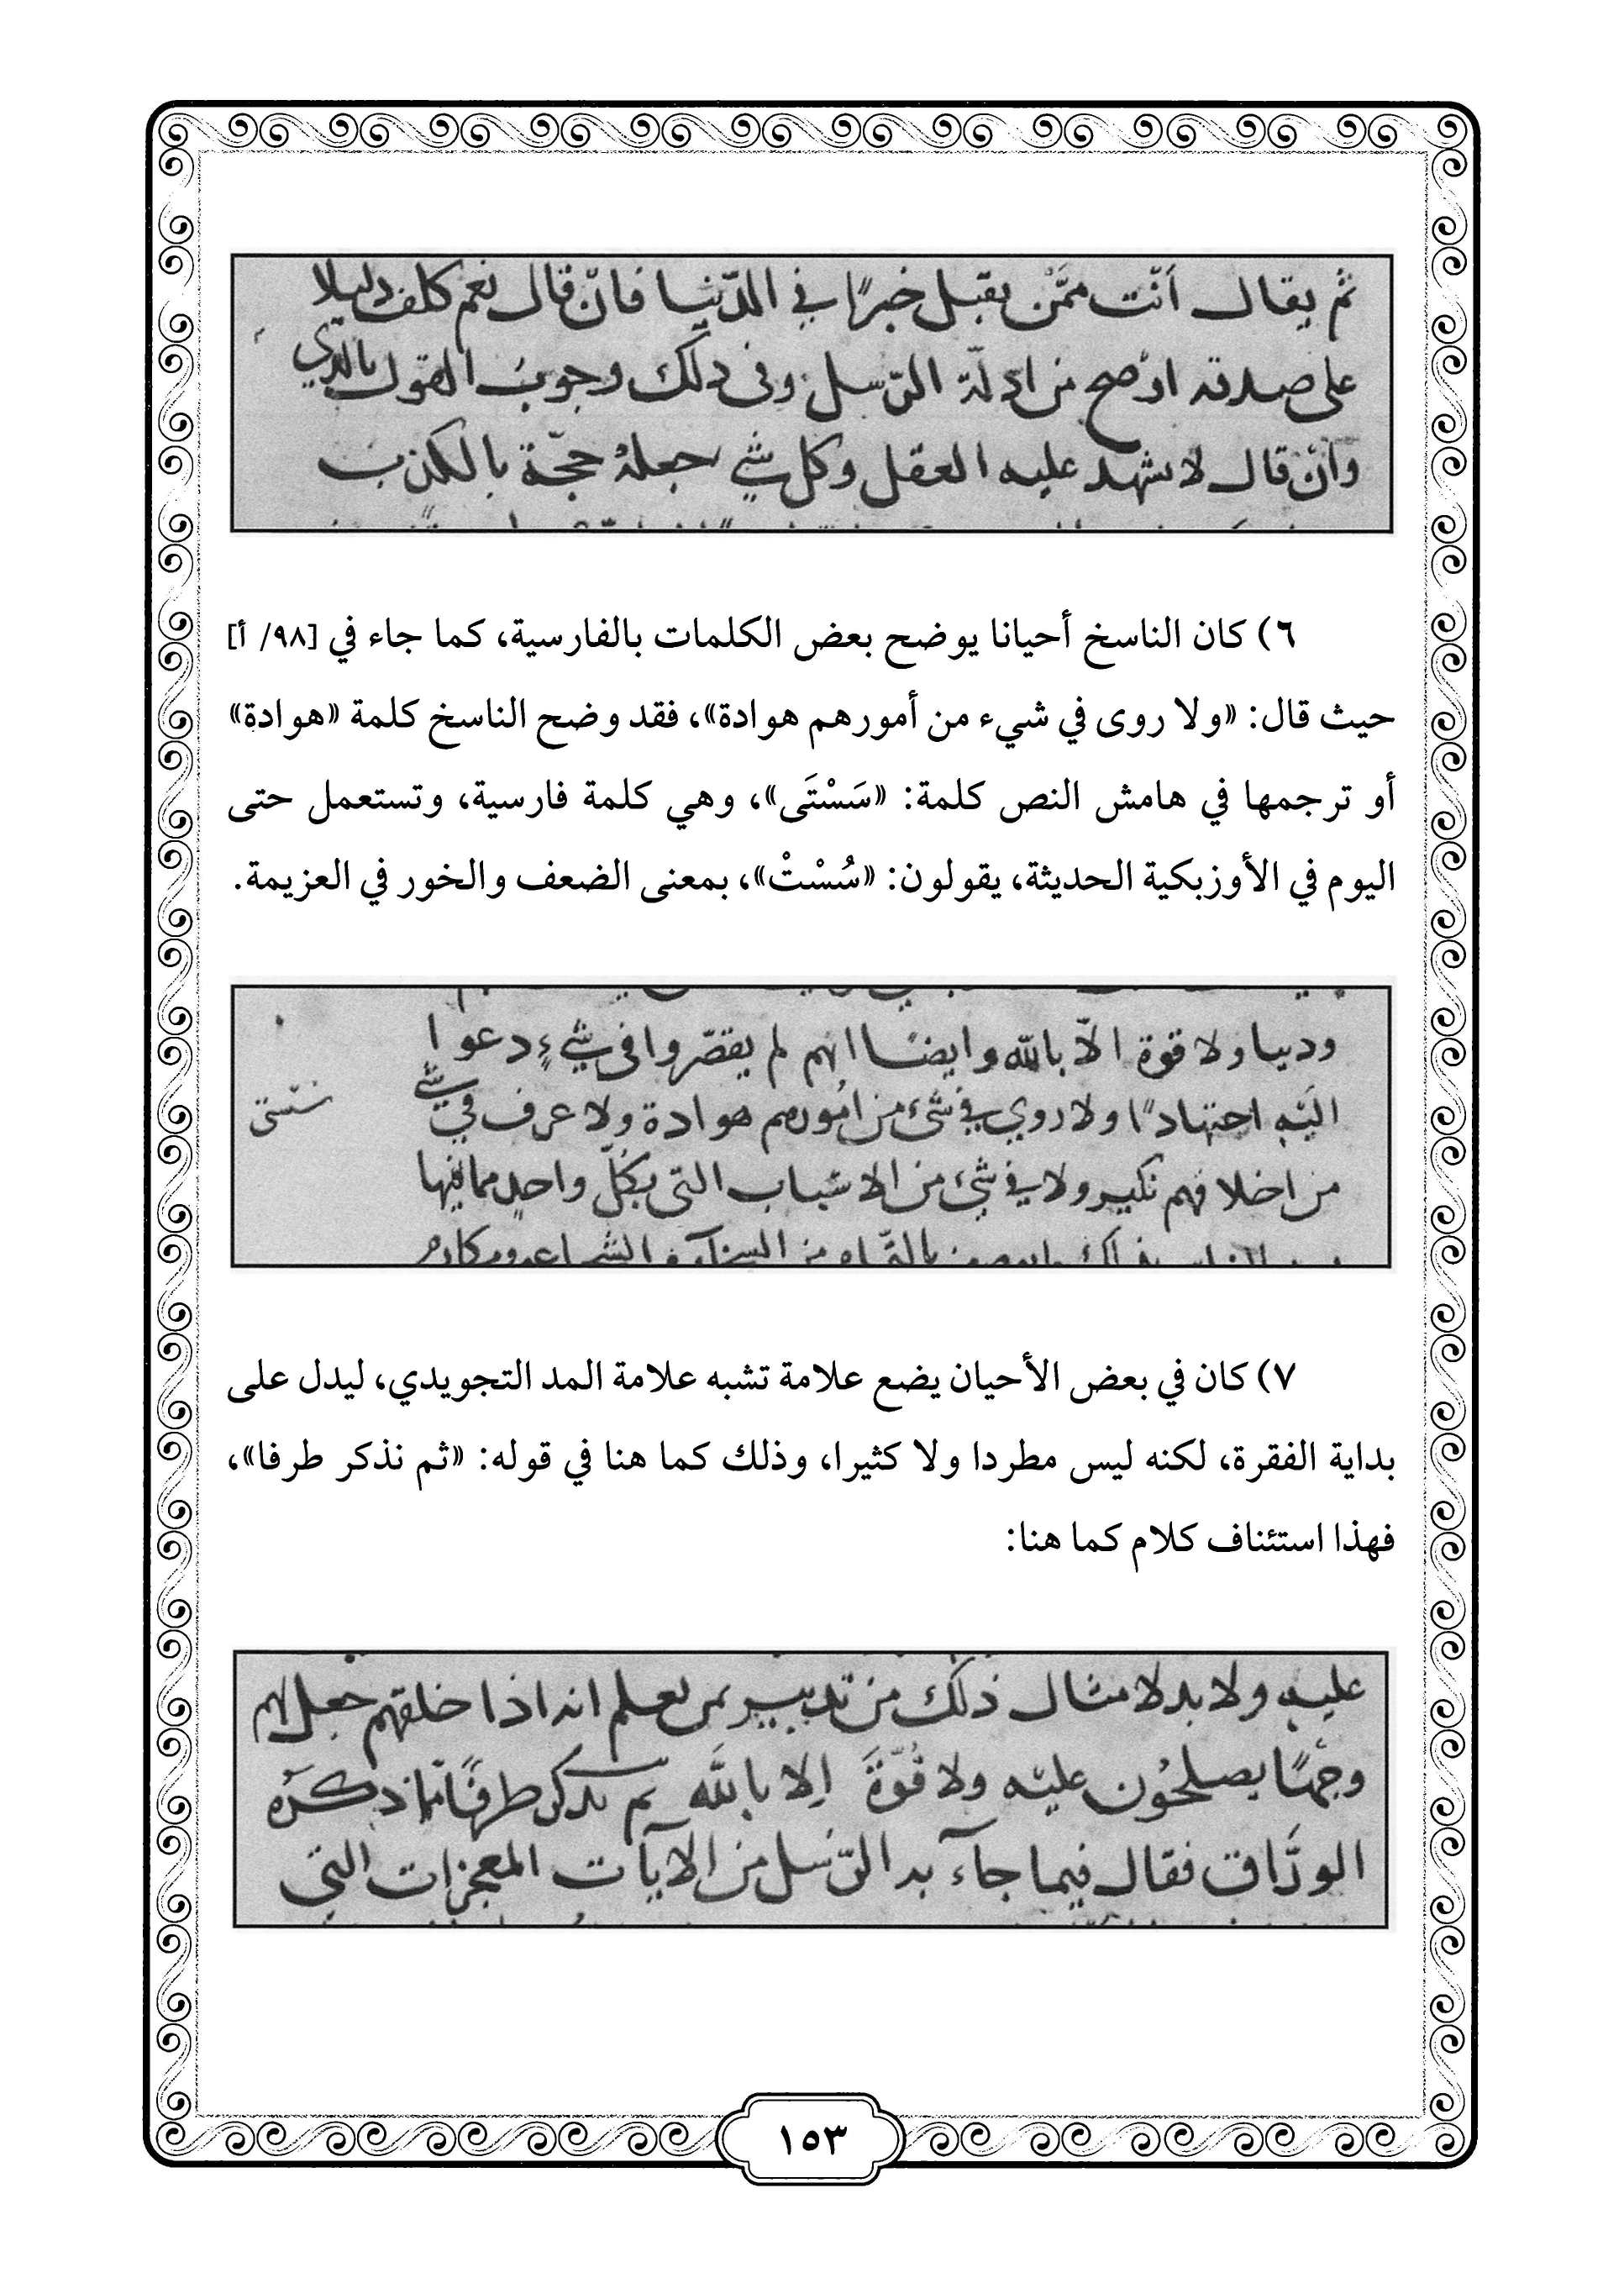 ثم يقال أنت ممن يقبل خبرًا في الدّنيا فان قال نعم كلف دليلا
على صدقه اوضح من ادلّة الرّسل وفى ذلك وجوب القول بالذي
وان قال لا شهد عليه العقل وكل شي جعله حجّة بالكذب
٦) كان الناسخ أحيانا يوضح بعض الكلمات بالفارسية، كما جاء في [٩٨/ أ]
حيث قال: «ولا روى في شيء من أمورهم هوادة»، فقد وضح الناسخ كلمة «هوادة»
أو ترجمها في هامش النص كلمة: «سَسْتَى»، وهي كلمة فارسية، وتستعمل حتى
اليوم في الأوزبكية الحديثة، يقولون: «سُسْتْ»، بمعنى الضعف والخور في العزيمة.
ودبيا ولا قوة الاّ بالله وايضًا انهم لم يقصّروا فى شيءٍ دعوا
اليه اجتهادًا ولا روي في شيء من امورهم هوادة ولا عرف في شي
سستى
من اخلاقهم نكير ولا في شيء من الاسباب التى بكلّ واحدٍ مما فيها
٧) كان في بعض الأحيان يضع علامة تشبه علامة المد التجويدي، ليدل على
بداية الفقرة، لكنه ليس مطردا ولا كثيرا، وذلك كما هنا في قوله: «ثم نذكر طرفا»،
فهذا استئناف كلام كما هنا:
عليه ولا بد لامثال ذلك من تدبير من يعلم انه اذا خلقهم جعل لهم
وجهًا يصلحُون عليه ولا قُوّةَ إلا باللّه ثم نذكر طرفًا مما ذكره
الورّاق فقال فيما جآء به الرّسل من الآيات المعجزات التى
١٥٣